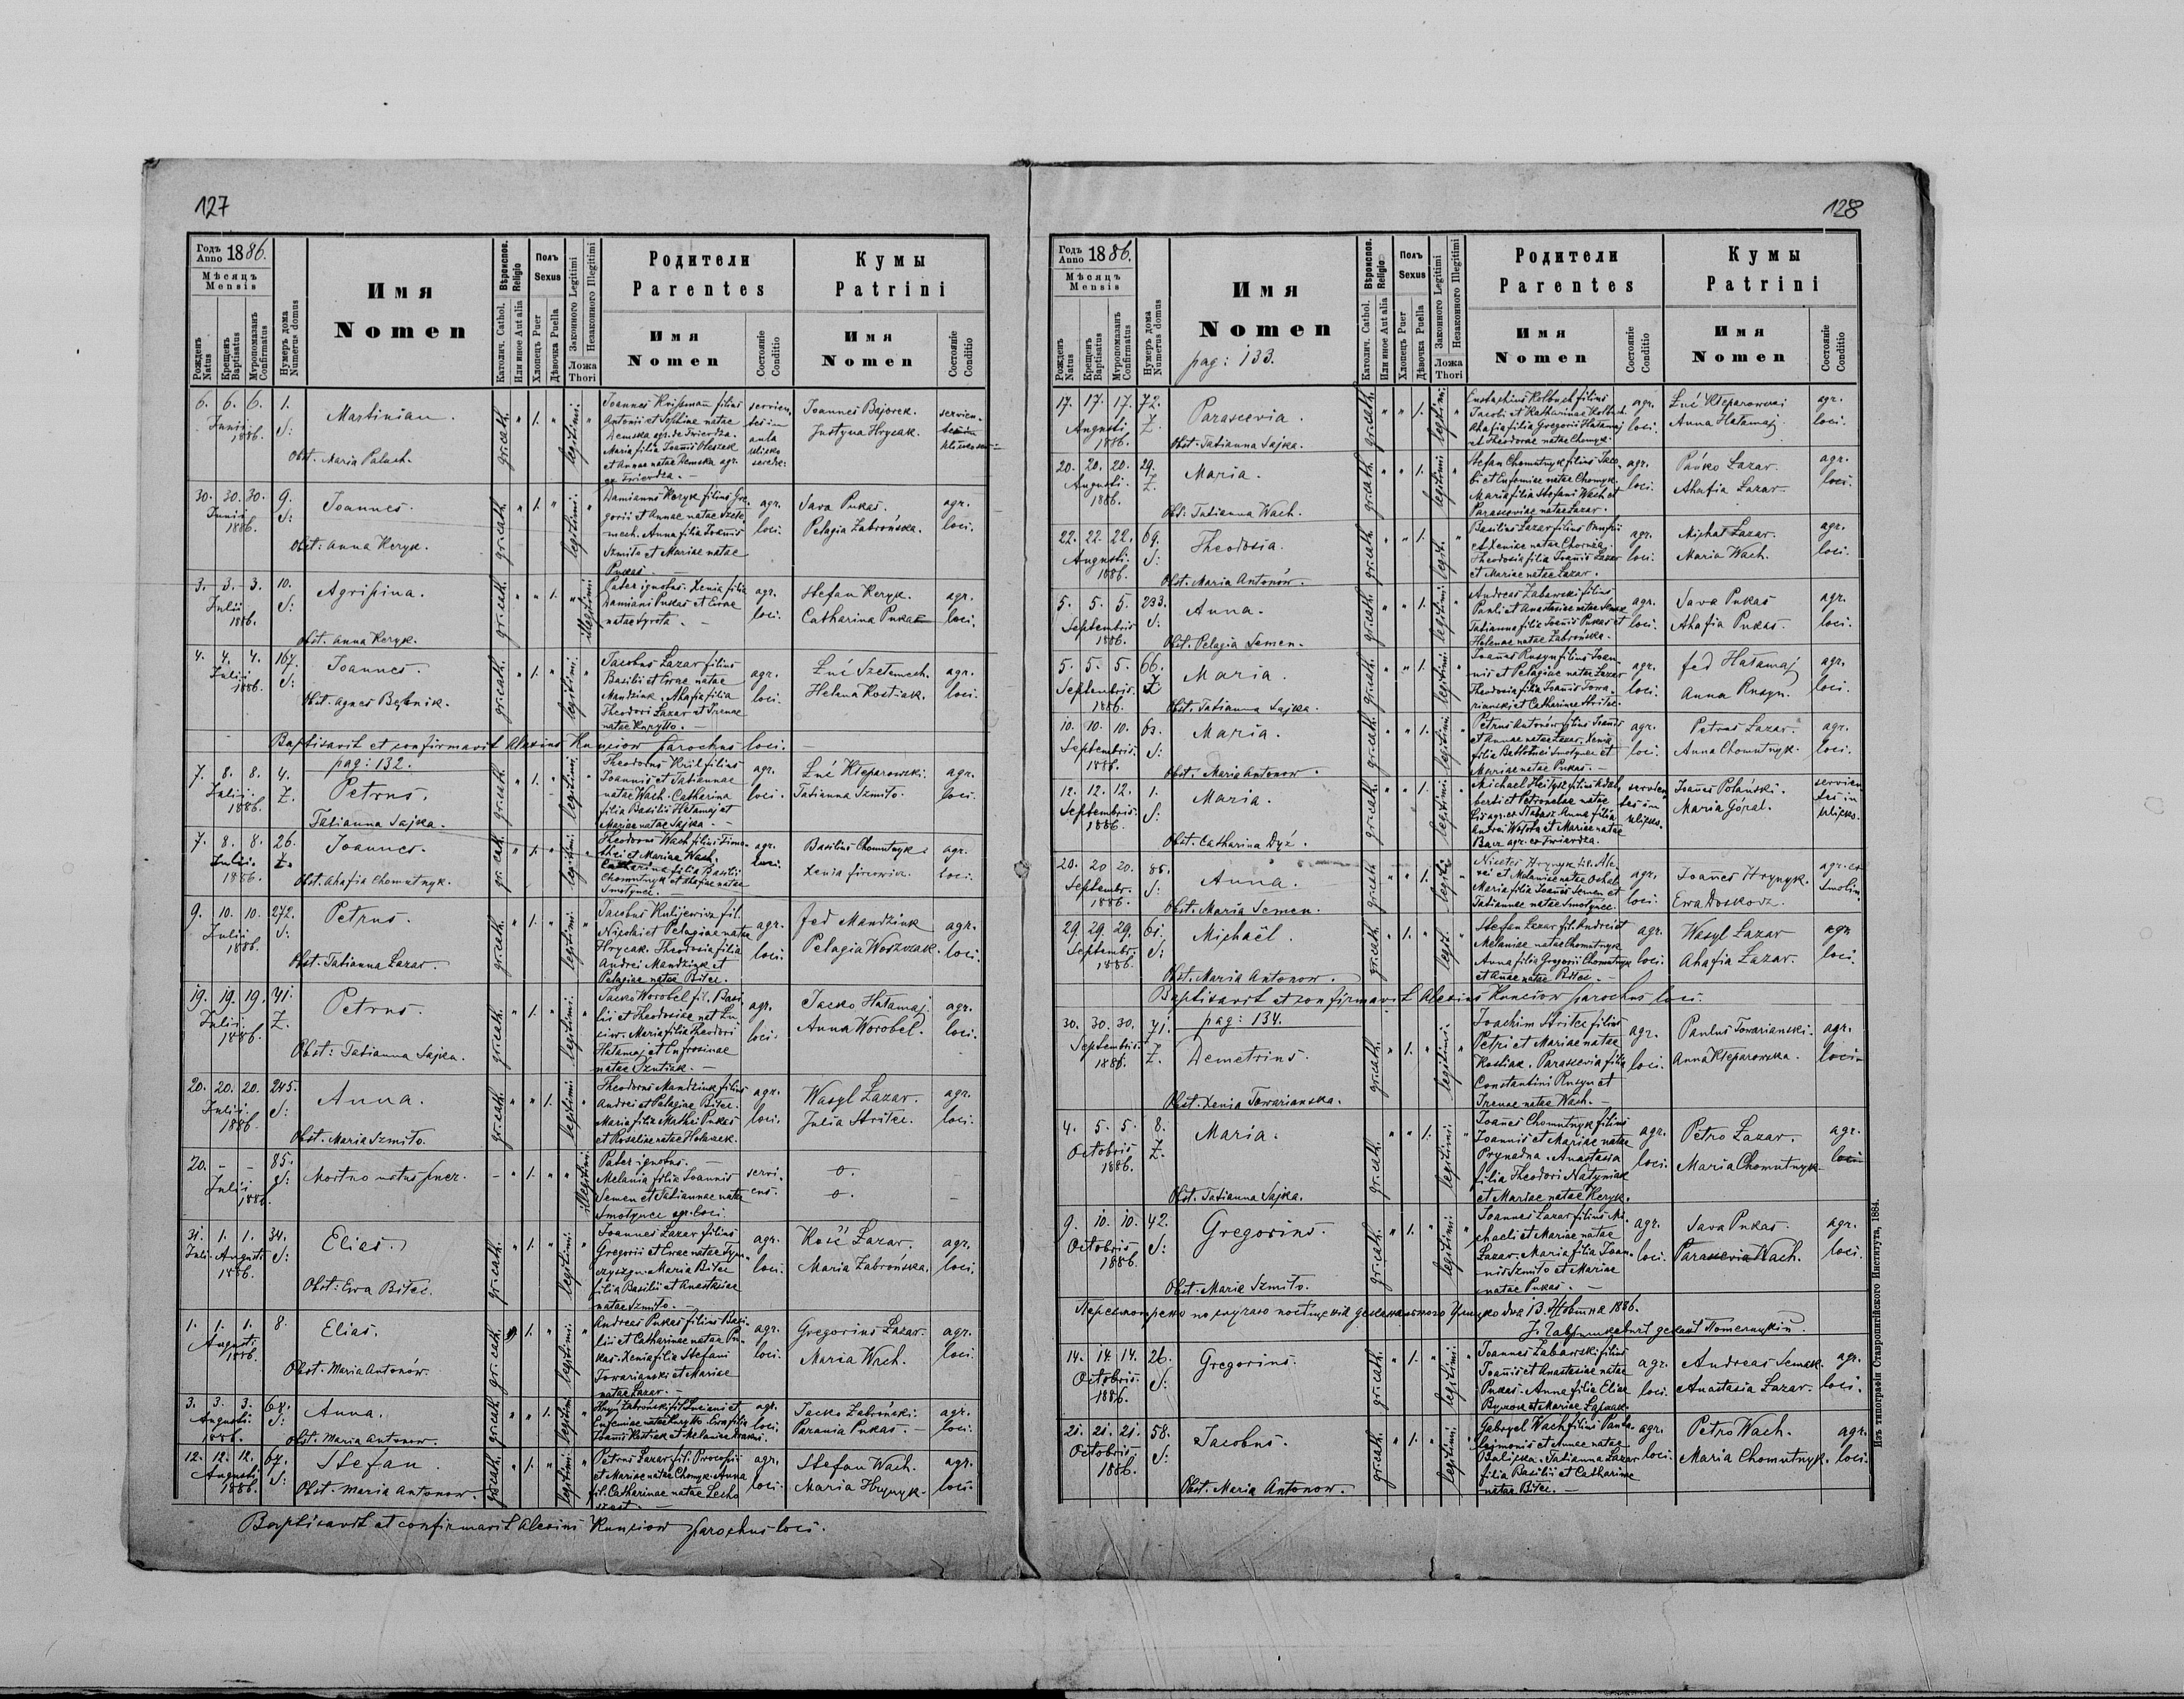 127
Годъ Anno 1886.
Мѣсяцъ Mensis
Рожденъ Natus
Крещенъ Baptisatus
Мѵропомазанъ Confirmatus
Нумеръ дома Numerus domus
Имя
Nomen
Вѣроиспов. Religio
Католич. Cathol.
Или иное Aut alia
Полъ Sexus
Хлопецъ Puer
Дѣвочка Puella
Законного Legitimi
Незаконного Illegitimi
Ложа Thori
Родители
Parentes
Имя
Nomen
Состояніе Conditio
Кумы
Patrini
Имя
Nomen
Состояніе Conditio
6. 6. 6. 1.
Junii 1886. S:
Martinian.
Obst. Maria Paluch.
gr. cath. " 1. " legitimi. "
Joannes filius
Antonii et natae
Maria filia Joannis
et Annae natae Remska agr.
Joannes Bajorek.
Justyna Hrycak.
30. 30. 30. 9.
Junii 1886. S:
Joannes.
Obst: Anna Keryk.
gr. cath. " 1. " legitimi. "
Damianus Keryk filius Gre-
gorii et Annae natae Szete-
mech. Anna filia Joannis
Szmiło et Mariae natae
Pukas.
agr. loci.
Sava Pukas.
Pelagia Zabrońska.
agr. loci.
3. 3. 3. 10.
Julii 1886. S:
Agripina.
Obst. Anna Keryk.
gr. cath. " " 1. " illegitimi
Pater ignotus. Xenia filia
Damiani Pukas et Evae
natae Syrota.
agr. loci.
Stefan Keryk.
Catharina Pukas
agr. loci.
4. 4. 4. 167.
Julii 1886. S:
Joannes.
Obst. Agnes Bębnik.
gr. cath. " 1. " legitimi. "
Jacobus Lazar filius
Basilii et Evae natae
Mandziuk. Ahafia filia
Theodori Lazar et Irenae
natae Kuryłło.
agr. loci.
Luć Szetemech.
Helena Kostiak.
agr. loci.
Baptisavit et confirmavit Alexius Kunciow parochus loci.
pag: 132.
7. 8. 8. 4.
Julii 1886. Z.
Petrus.
Tatianna Sajka.
gr. cath. " 1. " legitimi. "
Theodorus Król filius
Joannis et Tatiannae
natae Wach. Catharina
filia Basilii Hatamaj et
Mariae natae Sajka.
agr. loci.
Luć Kteparowski.
Tatianna Szmiło.
agr. loci.
7. 8. 8. 26.
Julii 1886. Z.
Joannes.
Obst. Ahafia Chomutnyk.
gr. cath. " 1. " legitimi. "
Theodorus Wach filius Timo-
thei et Mariae Wach.
Catharina filia Basilii
Chomutnyk et Ahafiae natae
Smotynec.
agr. loci.
Basilius Chomutnyk.
Xenia
agr. loci.
9. 10. 10. 272.
Julii 1886. S:
Petrus.
Obst. Tatianna Lazar.
gr. cath. " 1. " legitimi. "
Jacobus Kulijewicz fil.
et Pelagiae natae
Hrycak. Theodosia filia
Andrei Mandziuk et
Pelagiae natae Bitec.
agr. loci.
Fed Mandziuk
Pelagia Woszczak.
agr. loci.
19. 19. 19. 41.
Julii 1886. Z.
Petrus.
Obst: Tatianna Sajka.
gr. cath. " 1. " legitimi. "
Jacko Worobel fil. Basi-
lii et Theodosiae nat
Maria filia Theodori
Hatamaj et Eufrosinae
natae Szutiak.
agr. loci.
Jacko Hatamaj.
Anna Worobel.
agr. loci.
20. 20. 20. 245.
Julii 1886. S:
Anna.
Obst. Maria Szmiło.
gr. cath. " " 1. legitimi. "
Theodorus Mandziuk filius
Andrei et Pelagiae Bitec.
Maria filia Pukas
et Rosaliae natae
agr. loci.
Wasyl Lazar.
Julia Stritec.
agr. loci.
20. - - 85.
Julii 1886. S:
Mortuo natus puer.
- " 1. " " illegitimi.
Pater ignotus.
Melania filia Joannis
Semen et Tatiannae natae
Smotynec agr. loci.
serviens.
o.
o.
31. 1. 1. 34.
Julii. Augusti 1886. S:
Elias.
Obst: Eva Bitec.
gr. cath. " 1. " legitimi. "
Joannes Lazar filius
Gregorii et Evae natae Tym-
czyszyn. Maria Bitec
filia Basilii et Anastasiae
natae Szmiło.
agr. loci.
Kość Lazar.
Maria Zabrońska.
agr. loci.
1. 1. 1. 8.
Augusti 1886.
Elias.
Obst. Maria Antonów.
gr. cath. " 1. " legitimi. "
Andreas Pukas filius Basi-
lii et Catharinae natae Pu-
kas. Xenia filia Stefani
Towarianski et Mariae
natae Lazar.
agr. loci.
Gregorius Lazar.
Maria Wach.
agr. loci.
3. 3. 3. 64.
Augusti 1886. S:
Anna.
Obst. Maria Antonow.
gr. cath. " " 1. legitimi. "
Hryń Zabroński fil. Luciani et
Eufemiae natae
Joannis Kostiak et Melaniae
agr. loci.
Jacko Zabroński.
Parania Pukas.
agr. loci.
12. 12. 12. 67.
Augusti 1886. S:
Stefan.
Obst. Maria Antonow.
gr. cath. " 1. " legitimi. "
Petrus Lazar fil. Procopii
et Mariae natae Chomyk. Anna
fil. Catharinae natae
agr. loci.
Stefan Wach.
Maria Hrynyk.
agr. loci.
Baptisavit et confirmavit Alexius Kunciow parochus loci.
128
Годъ Anno 1886.
Мѣсяцъ Mensis
Рожденъ Natus
Крещенъ Baptisatus
Мѵропомазанъ Confirmatus
Нумеръ дома Numerus domus
Имя
Nomen
pag: 133.
Вѣроиспов. Religio
Католич. Cathol.
Или иное Aut alia
Полъ Sexus
Хлопецъ Puer
Дѣвочка Puella
Законного Legitimi
Незаконного Illegitimi
Ложа Thori
Родители
Parentes
Имя
Nomen
Состояніе Conditio
Кумы
Patrini
Имя
Nomen
Состояніе Conditio
17. 17. 17. 72.
Augusti 1886. Z.
Parascevia.
Obst. Tatianna Sajka.
gr. cath. " " 1. legitimi. "
Eustachius Kolbuch filius
Jacobi et Katharinae
Ahafia filia Gregorii Hatamaj
et Theodorae natae Chomyk.
agr. loci.
Luć Kteparowski
Anna Hatamaj.
agr. loci.
20. 20. 20. 29.
Augusti 1886. Z.
Maria.
Obst: Tatianna Wach.
gr. cath. " " 1. legitimi. "
Stefan Chomutnyk filius Jaco-
bi et Eufemiae natae Chomyk.
Maria filia Stefani Wach et
Parasceviae natae Lazar.
agr. loci.
Pańko Lazar.
Ahafia Lazar.
agr. loci.
22. 22. 22. 69.
Augusti 1886. S:
Theodosia.
Obst. Maria Antonów.
gr. cath. " " 1. legit. "
Basilius Lazar filius Onufrii
et Xeniae natae
Theodosia filia Joannis Lazar
et Mariae natae Lazar.
agr. loci.
Michał Lazar.
Maria Wach.
agr. loci.
5. 5. 5. 233.
Septembris 1886. S:
Anna.
Obst. Pelagia Semen.
gr. cath. " " 1. legitimi. "
Andreas Zabawski filius
Pauli et Anastasiae natae
Tatianna filia Joannis Pukas et
Helenae natae Zabrońska.
agr. loci.
Sava Pukas
Ahafia Pukas.
agr. loci.
5. 5. 5. 66.
Septembris. 1886. Z
Maria.
Obst. Tatianna Sajka.
gr. cath. " " 1. legitimi. "
Joannes Rusyn filius Joan-
nis et Pelagiae natae Lazar
Theodosia filia Joannis Towa-
rianski et Catharinae Stritec.
agr. loci.
Fed Hatamaj
Anna Rusyn.
agr. loci.
10. 10. 10. 63.
Septembris 1886. S:
Maria.
Obst. Maria Antonow.
gr. cath. " " 1. legitimi. "
Petrus Antonów filius Joannis
et Annae natae Lazar. Xenia
filia Smotynec et
Mariae natae Pukas.
agr. loci.
Petrus Lazar.
Anna Chomutnyk.
agr. loci.
12. 12. 12. 1.
Septembris 1886. S:
Maria.
Obst. Catharina Dyż.
gr. cath. " " 1. legitimi. "
Michael filius Adal-
berti et Petronelae natae
Anna filia
Andrei et Mariae natae
Joannes Polański.
Maria Góral.
20. 20 20. 85.
Septembr. 1886. S:
Anna.
Obst. Maria Semen.
gr. cath. " " 1. legitimi "
Nicetas Hrynyk fil. Ale-
xei et Melaniae natae
Maria filia Joannis Semen et
Tatiannae natae Smotynec.
agr. loci.
Joannes Hrynyk.
Ewa Doskocz.
agr. ex Smolin.
29. 29. 29. 61.
Septembr. 1886. S:
Michaël.
Obst. Maria Antonow.
gr. cath. " 1. " legit. "
Stefan Lazar fil. Andrei et
Melaniae natae Chomutnyk
Anna filia Gregorii Chomutnyk
et Annae natae Bitec.
agr. loci.
Wasyl Lazar
Ahafia Lazar.
agr. loci.
Baptisavit et confirmavit Alexius Kunciow parochus loci.
pag: 134.
30. 30. 30. 71.
Septembris 1886. Z.
Demetrius.
Obst. Xenia Towarianska.
gr. cath. " 1. " legitimi. "
Joachim Stritec filius
Petri et Mariae natae
Kostiak. Parascevia filia
Constantini Rusyn et
Irenae natae Wach.
agr. loci.
Paulus Towarianski.
Anna Kteparowska.
agr. loci
4. 5. 5. 8.
Octobris 1886. Z.
Maria.
Obst. Tatianna Sajka.
gr. cath. " " 1. legitimi. "
Joannes Chomutnyk filius
Joannis et Mariae natae
Prynadna. Anastasia
filia Theodori Natyniak
et Mariae natae Keryk.
agr. loci.
Petro Lazar.
Maria Chomutnyk
agr. loci
9. 10. 10. 42.
Octobris 1886. S:
Gregorius.
Obst. Maria Szmiło.
gr. cath. " 1. " legitimi. "
Joannes Lazar filius Mi-
chaeli et Mariae natae
Lazar. Maria filia Joan-
nis Szmiło et Mariae
natae Pukas.
agr. loci.
Sava Pukas.
Parascevia Wach.
agr. loci.
Пересмотрено по случаю посѣщенія деканального дня 13. Жовтня 1886.
деканъ
14. 14. 14. 26.
Octobris 1886. S:
Gregorius.
gr. cath. " 1. " legitimi. "
Joannes Zabawski filius
Joannis et Anastasiae natae
Pukas. Anna filia Eliae
et Mariae
agr. loci.
Andreas
Anastasia Lazar.
agr. loci.
21. 21. 21. 58.
Octobris 1886. S:
Jacobus.
Obst. Maria Antonow.
gr. cath. " 1. " legitimi. "
Gabryel Wach filius Panta-
lejmonis et Annae natae
Tatianna Lazar
filia Basilii et Catharinae
natae Bitec.
agr. loci.
Petro Wach.
Maria Chomutnyk.
agr. loci.
Изъ типографіи Ставропигійского Института, 1884.